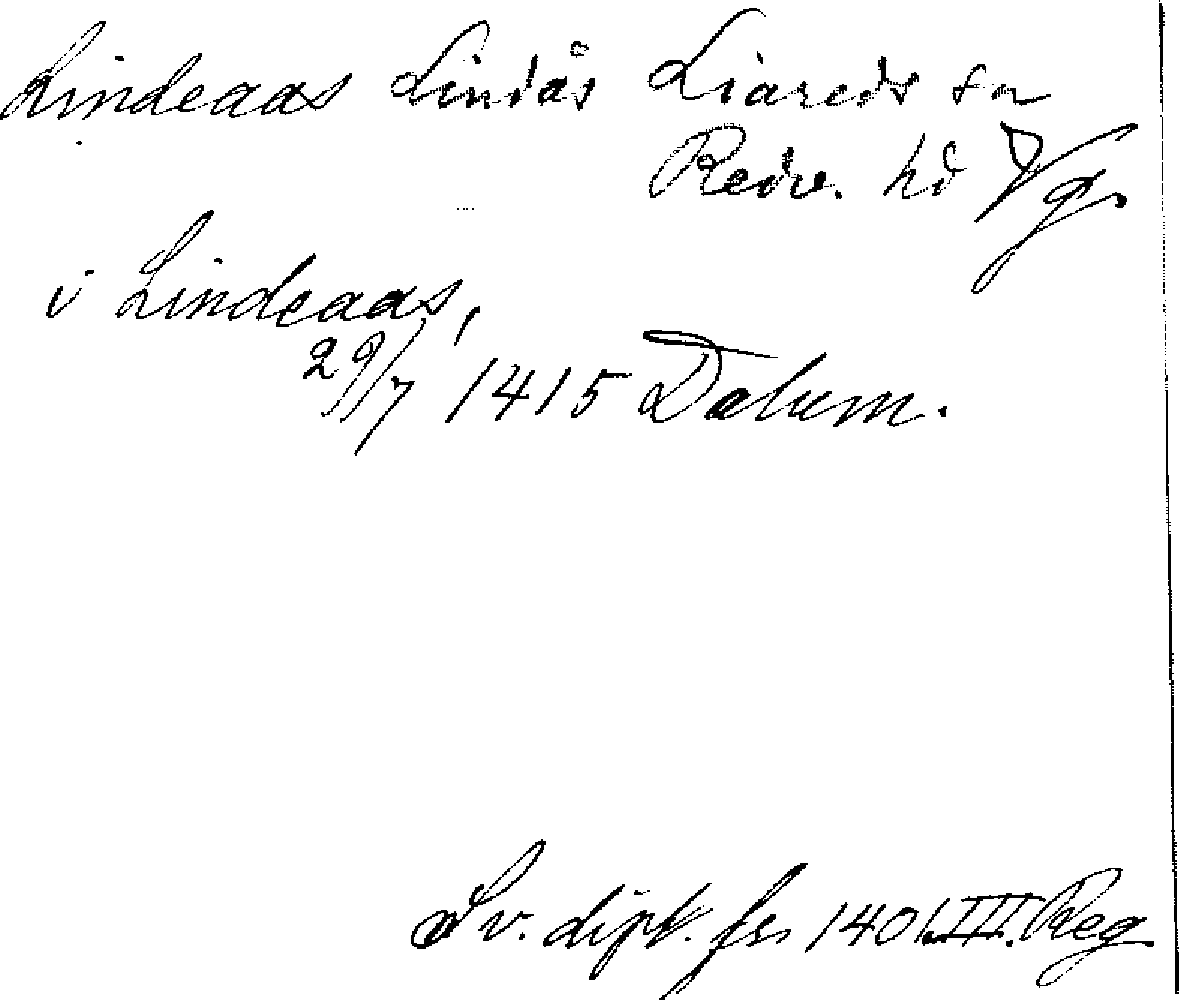 Lindeaas Lindås Liareds sn
Redv. hd Vg.
i Lindeaas,
29/7 1415 Dalum.
Sv. dipl. fr. 1401 III. Reg